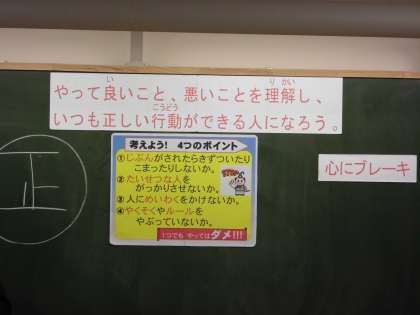 やって良いこと、悪いことを理解し、
いつも正しい行動ができる人になろう。
考えよう! 4つのポイント
①じぶんがされたらきずついたり
こまったりしないか。
②たいせつな人を
がっかりさせないか。
③人にめいわくをかけないか。
④やくそくやルールを
やぶっていないか。
1つでも やっては ダメ!!!
心にブレーキ
正